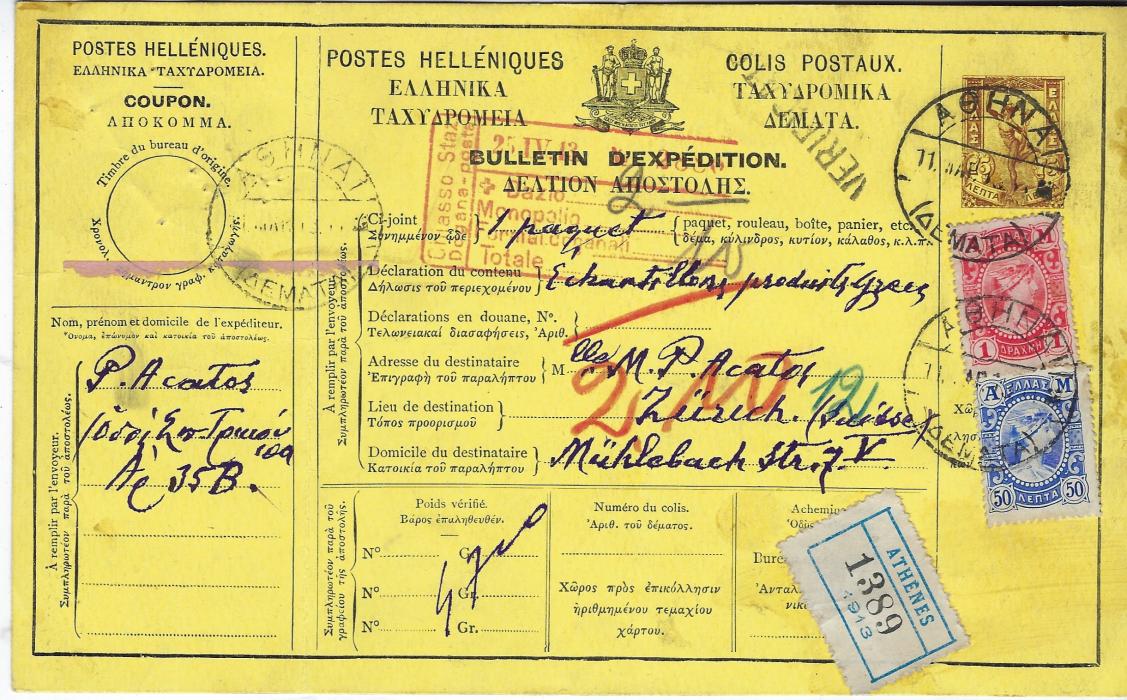 POSTES HELLÉNIQUES.
ΕΛΛΗΝΙΚΑ ΤΑΧΥΔΡΟΜΕΙΑ.
COUPON.
ΑΠΟΚΟΜΜΑ.
Timbre du bureau d'origine.
Nom, prénom et domicile de l'expéditeur.
Ὄνομα, ἐπώνυμον καὶ κατοικία τοῦ ἀποστολέως.
P. Acatos
Ἀρ 35Β.
À remplir par l'envoyeur.
Συμπληρωτέον παρὰ τοῦ ἀποστολέως.
POSTES HELLÉNIQUES
ΕΛΛΗΝΙΚΑ
ΤΑΧΥΔΡΟΜΕΙΑ
COLIS POSTAUX.
ΤΑΧΥΔΡΟΜΙΚΑ
ΔΕΜΑΤΑ.
BULLETIN D'EXPÉDITION.
ΔΕΛΤΙΟΝ ΑΠΟΣΤΟΛΗΣ.
25 IV 13
Dazio
Monopolio
Totale
À remplir par l'envoyeur.
Συμπληρωτέον παρὰ τοῦ ἀποστολέως.
Ci-joint
Συνημμένον ὧδε
1 paquet
paquet, rouleau, boîte, panier, etc.
δέμα, κύλινδρος, κυτίον, κάλαθος, κ.λ.π.
Déclaration du contenu
Δήλωσις τοῦ περιεχομένου
Echantillons produits Grecs
Déclarations en douane, Nº.
Τελωνειακαὶ διασαφήσεις, Ἀριθ.
Adresse du destinataire
Ἐπιγραφὴ τοῦ παραλήπτου
M
lle M. P. Acatos
12
Lieu de destination
Τόπος προορισμοῦ
Zürich. (Suisse)
Domicile du destinataire
Κατοικία τοῦ παραλήπτου
Mühlebach Str. 7 V.
Συμπληρωτέον παρὰ τοῦ
γραφείου τῆς ἀποστολῆς.
Poids vérifié.
Βάρος ἐπαληθευθέν.
Nº Gr.
Nº Gr.
Nº Gr.
Numéro du colis.
Ἀριθ. τοῦ δέματος.
Χῶρος πρὸς ἐπικόλλησιν
ἠριθμημένου τεμαχίου
χάρτου.
ATHÈNES
1389
1913
ΕΛΛΑΣ
ΛΕΠΤΑ
ΑΘΗΝΑΙ
(ΔΕΜΑΤΑ)
Μ
1 ΔΡΑΧΜΗ 1
Α ΕΛΛΑΣ Μ
50 ΛΕΠΤΑ 50